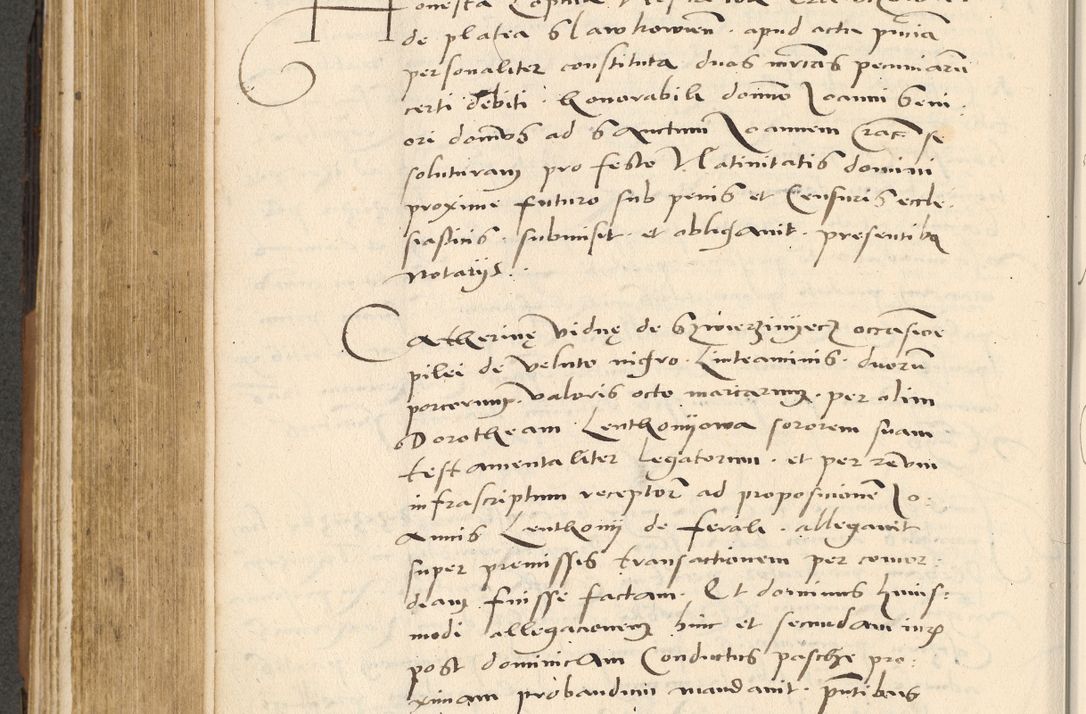 de platea Slawkowien. apud acta pnia
personaliter constituta duas mrcas pecuniarũ
certi debiti honorabili domino Joanni Seni
ori domus ad Sanctum Joannem Crac. se
soluturam pro festo Natiuitatis domini
proxime futuro sub penis et Censuris eccle
siasticis submisit et obligauit. presentibus
notarijs.
Catherinę vidue de Szwierzinyecz occasione
pilei de veluto nigro. Linteaminis duorũ
porcorum. valoris octo marcarum. per olim
Dorotheam Lenthonyowa sororem suam
testamentaliter Legatorum. et per reum
infrascriptum receptor ad proposicionem Jo
annis Lenthonij de ferali. allegauit
super premissis transactionem per concor
diam fuisse factam. Et dominus huius
modi allegacionem hinc et secundam iurj
post dominicam Conductus pasche pro
ximam probandum mandauit. pntibus